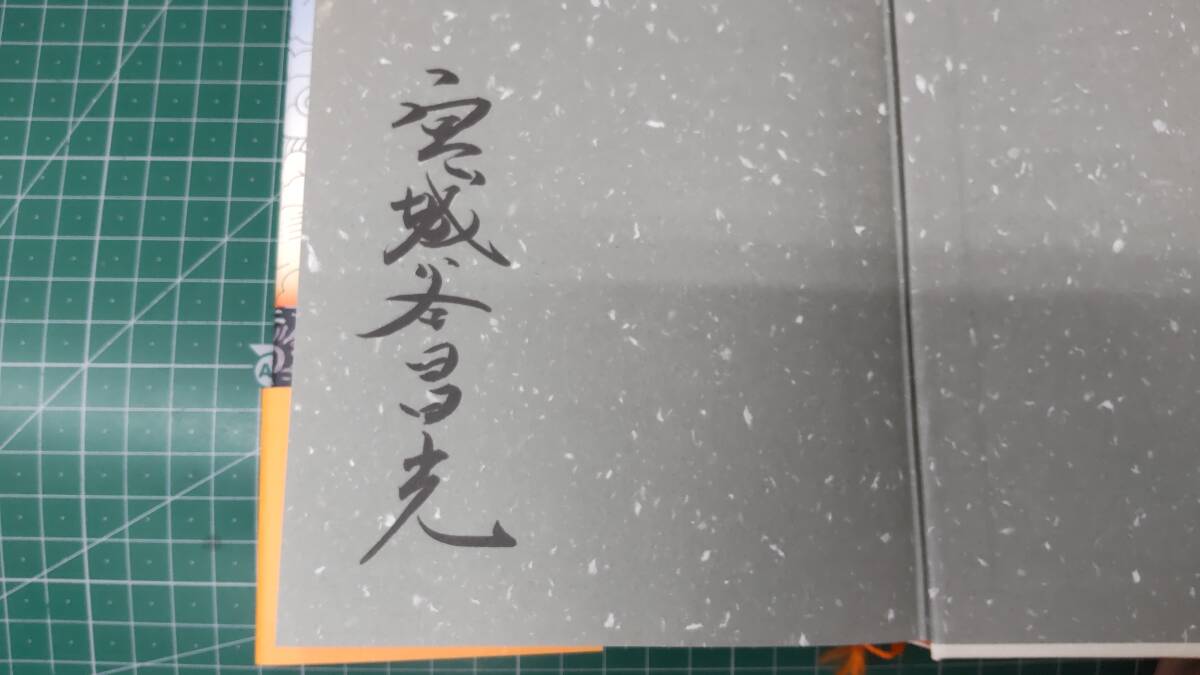 宮城谷昌光
A